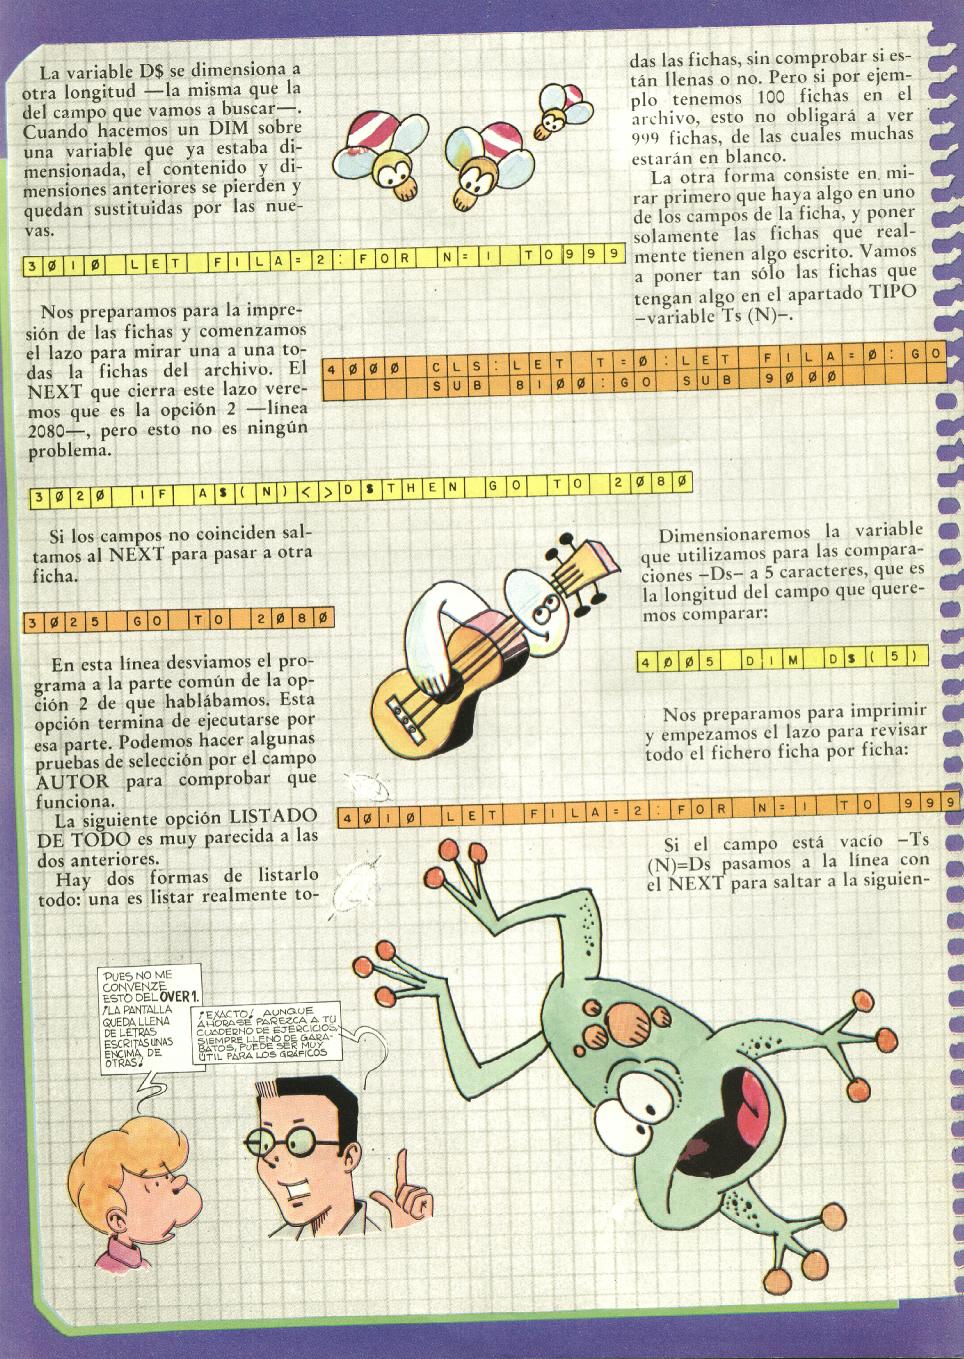 La variable D$ se dimensiona a
otra longitud —la misma que la
del campo que vamos a buscar—.
Cuando hacemos un DIM sobre
una variable que ya estaba di-
mensionada, el contenido y di-
mensiones anteriores se pierden y
quedan sustituidas por las nue-
vas.
3010 LET FILA=2: FOR N=1 TO999
Nos preparamos para la impre-
sión de las fichas y comenzamos
el lazo para mirar una a una to-
das la fichas del archivo. El
NEXT que cierra este lazo vere-
mos que es la opción 2 —línea
2080—, pero esto no es ningún
problema.
3020 IF A$(N)<>D$THEN GO TO 2080
Si los campos no coinciden sal-
tamos al NEXT para pasar a otra
ficha.
3025 GO TO 2080
En esta línea desviamos el pro-
grama a la parte común de la op-
ción 2 de que hablábamos. Esta
opción termina de ejecutarse por
esa parte. Podemos hacer algunas
pruebas de selección por el campo
AUTOR para comprobar que
funciona.
La siguiente opción LISTADO
DE TODO es muy parecida a las
dos anteriores.
Hay dos formas de listarlo
todo: una es listar realmente to-
das las fichas, sin comprobar si es-
tán llenas o no. Pero si por ejem-
plo tenemos 100 fichas en el
archivo, esto no obligará a ver
999 fichas, de las cuales muchas
estarán en blanco.
La otra forma consiste en mi-
rar primero que haya algo en uno
de los campos de la ficha, y poner
solamente las fichas que real-
mente tienen algo escrito. Vamos
a poner tan sólo las fichas que
tengan algo en el apartado TIPO
–variable Ts (N)–.
4000 CLS:LET T=0:LET FILA=0:GO
SUB 8100:GO SUB 9000
Dimensionaremos la variable
que utilizamos para las compara-
ciones –Ds– a 5 caracteres, que es
la longitud del campo que quere-
mos comparar:
4005 DIM D$(5)
Nos preparamos para imprimir
y empezamos el lazo para revisar
todo el fichero ficha por ficha:
4010 LET FILA=2:FOR N=1 TO 999
Si el campo está vacío –Ts
(N)=Ds pasamos a la línea con
el NEXT para saltar a la siguien-
PUES NO ME
CONVENZE
ESTO DEL OVER 1.
¡LA PANTALLA
QUEDA LLENA
DE LETRAS
ESCRITAS UNAS
ENCIMA DE
OTRAS!
¡EXACTO! AUNQUE
AHORA SE PAREZCA A TU
CUADERNO DE EJERCICIOS,
SIEMPRE LLENO DE GARA-
BATOS, PUEDE SER MUY
ÚTIL PARA LOS GRÁFICOS